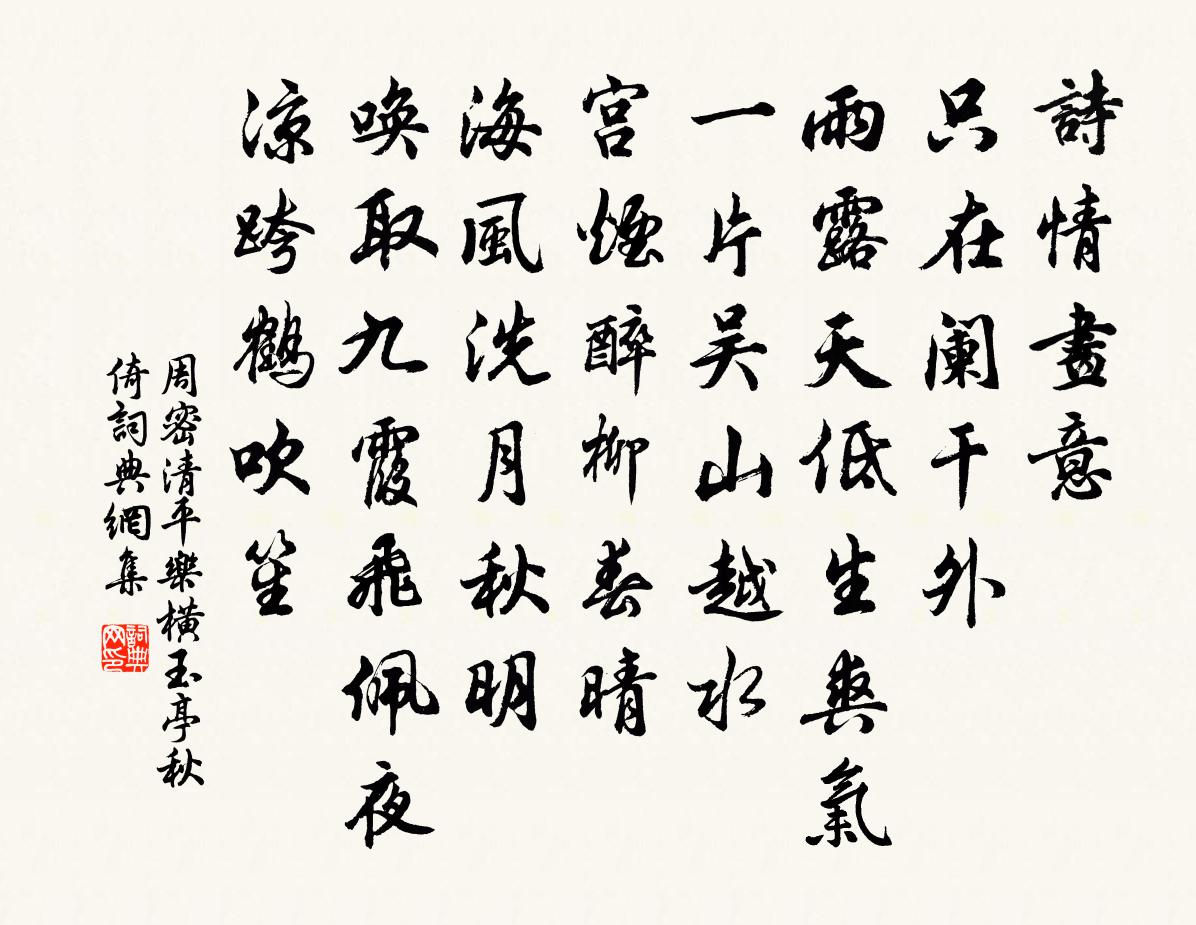 詩情畫意
只在阑干外
雨露天低生爽氣
一片吴山越水
宫煙醉柳春晴
海風洗月秋明
唤取九霞飛佩夜
凉跨鶴吹笙
周密清平樂橫玉亭秋
倚詞典網集
詞典网印